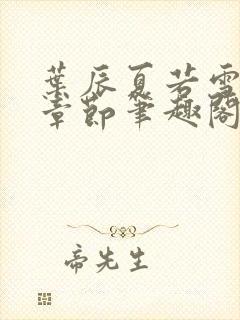 葉辰夏若雪
章節筆趣閣
帝先生